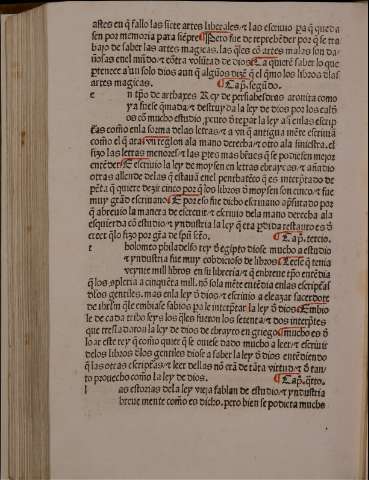 astes en q̃ fallo las siete artes liberales ⁊ las escriuio pa q̃ queda
sen por memoria para siẽpre ¶ Pero fue de reprehẽder por q̃ se tra
bajo de saber las artes magicas. las q̃les cõ artes malas son da
ñosas en el mũdo ⁊ cõtra volũtad de dios ¶ La q̃ quieré saber lo que
ptenece a vn solo dios aun q̃ algũos dezẽ q̃ el q̃mo los libros dlas
artes magicas. ¶ Cap. segũdo.
e n tpo de arthaxes Rey de persia esdras
ya fue se q̃mada ⁊ destruyda la ley de dios por los cal
os cõ mucho estudio, procuro de repar la ley assi en las escrip
ras como en la forma de las letras ⁊ a vn q̃ antigua mẽte escriuiã
como el q̃ ara vn reglon ala mano derecha ⁊ otro ala siniestra. el
fizo las letras menores ⁊ las ptes mas bẽues q̃ se podiesen mejor
entẽder ¶ Escriuio la ley de moysen en letras ebraycas ⁊ añadio
otras allende de las q̃ estauã en el penthateuco q̃ es interptado de
pẽta q̃ quiere dezir cinco por q̃ los libros d moysen son cinco. ⁊ fue
muy grãd escriuano ¶ E por eso fue dicho escriuano apsurado por
q̃ abreuio la manera de escreuir ⁊ escriuio dela mano derecha ala
esquierda cõ estudio ⁊ yndustria la ley q̃ era pdida restauro
erect qlo fizo por grã de spũ sctõ. ¶ Cap. tercio.
t holomeo philadelfo rey d egipto diose mucho a estudio
⁊ yndustria fue muy cobdicioso de libros ¶ Leese q̃ tenia
veynte mill libros en su libreria ⁊ q̃ en breue tpo entẽdia
q̃ los xpleria a cinquẽta mill. nõ sola mẽte entẽdia enlas escripturas
dlos gentiles. mas en la ley d dios ⁊ escriuio a eleazar sacerdote
de ihrlm q̃ le embiase sabios pa le interptar la ley d dios ¶ Embio
le de cada tribo seys los q̃les fueron los setenta ⁊ dos interptes
que tresladaron la ley de dios de ebrayco en griego ¶ mucho es d
loar este rey q̃ como quier q̃ se ouiese dado mucho a leer ⁊ escriuir
delos libros dlos gentiles diose a saber la ley d dios entẽdiendo
q̃ las otras escripturas ⁊ leer dellas nõ erã de tãta virtud ⁊ d tan
to prouecho como la ley de dios. ¶ Cap. q̃rto.
l as estorias dela ley vieja fablan de estudio ⁊ yndustria
breue mente como es dicho. pero bien se podiera mucho